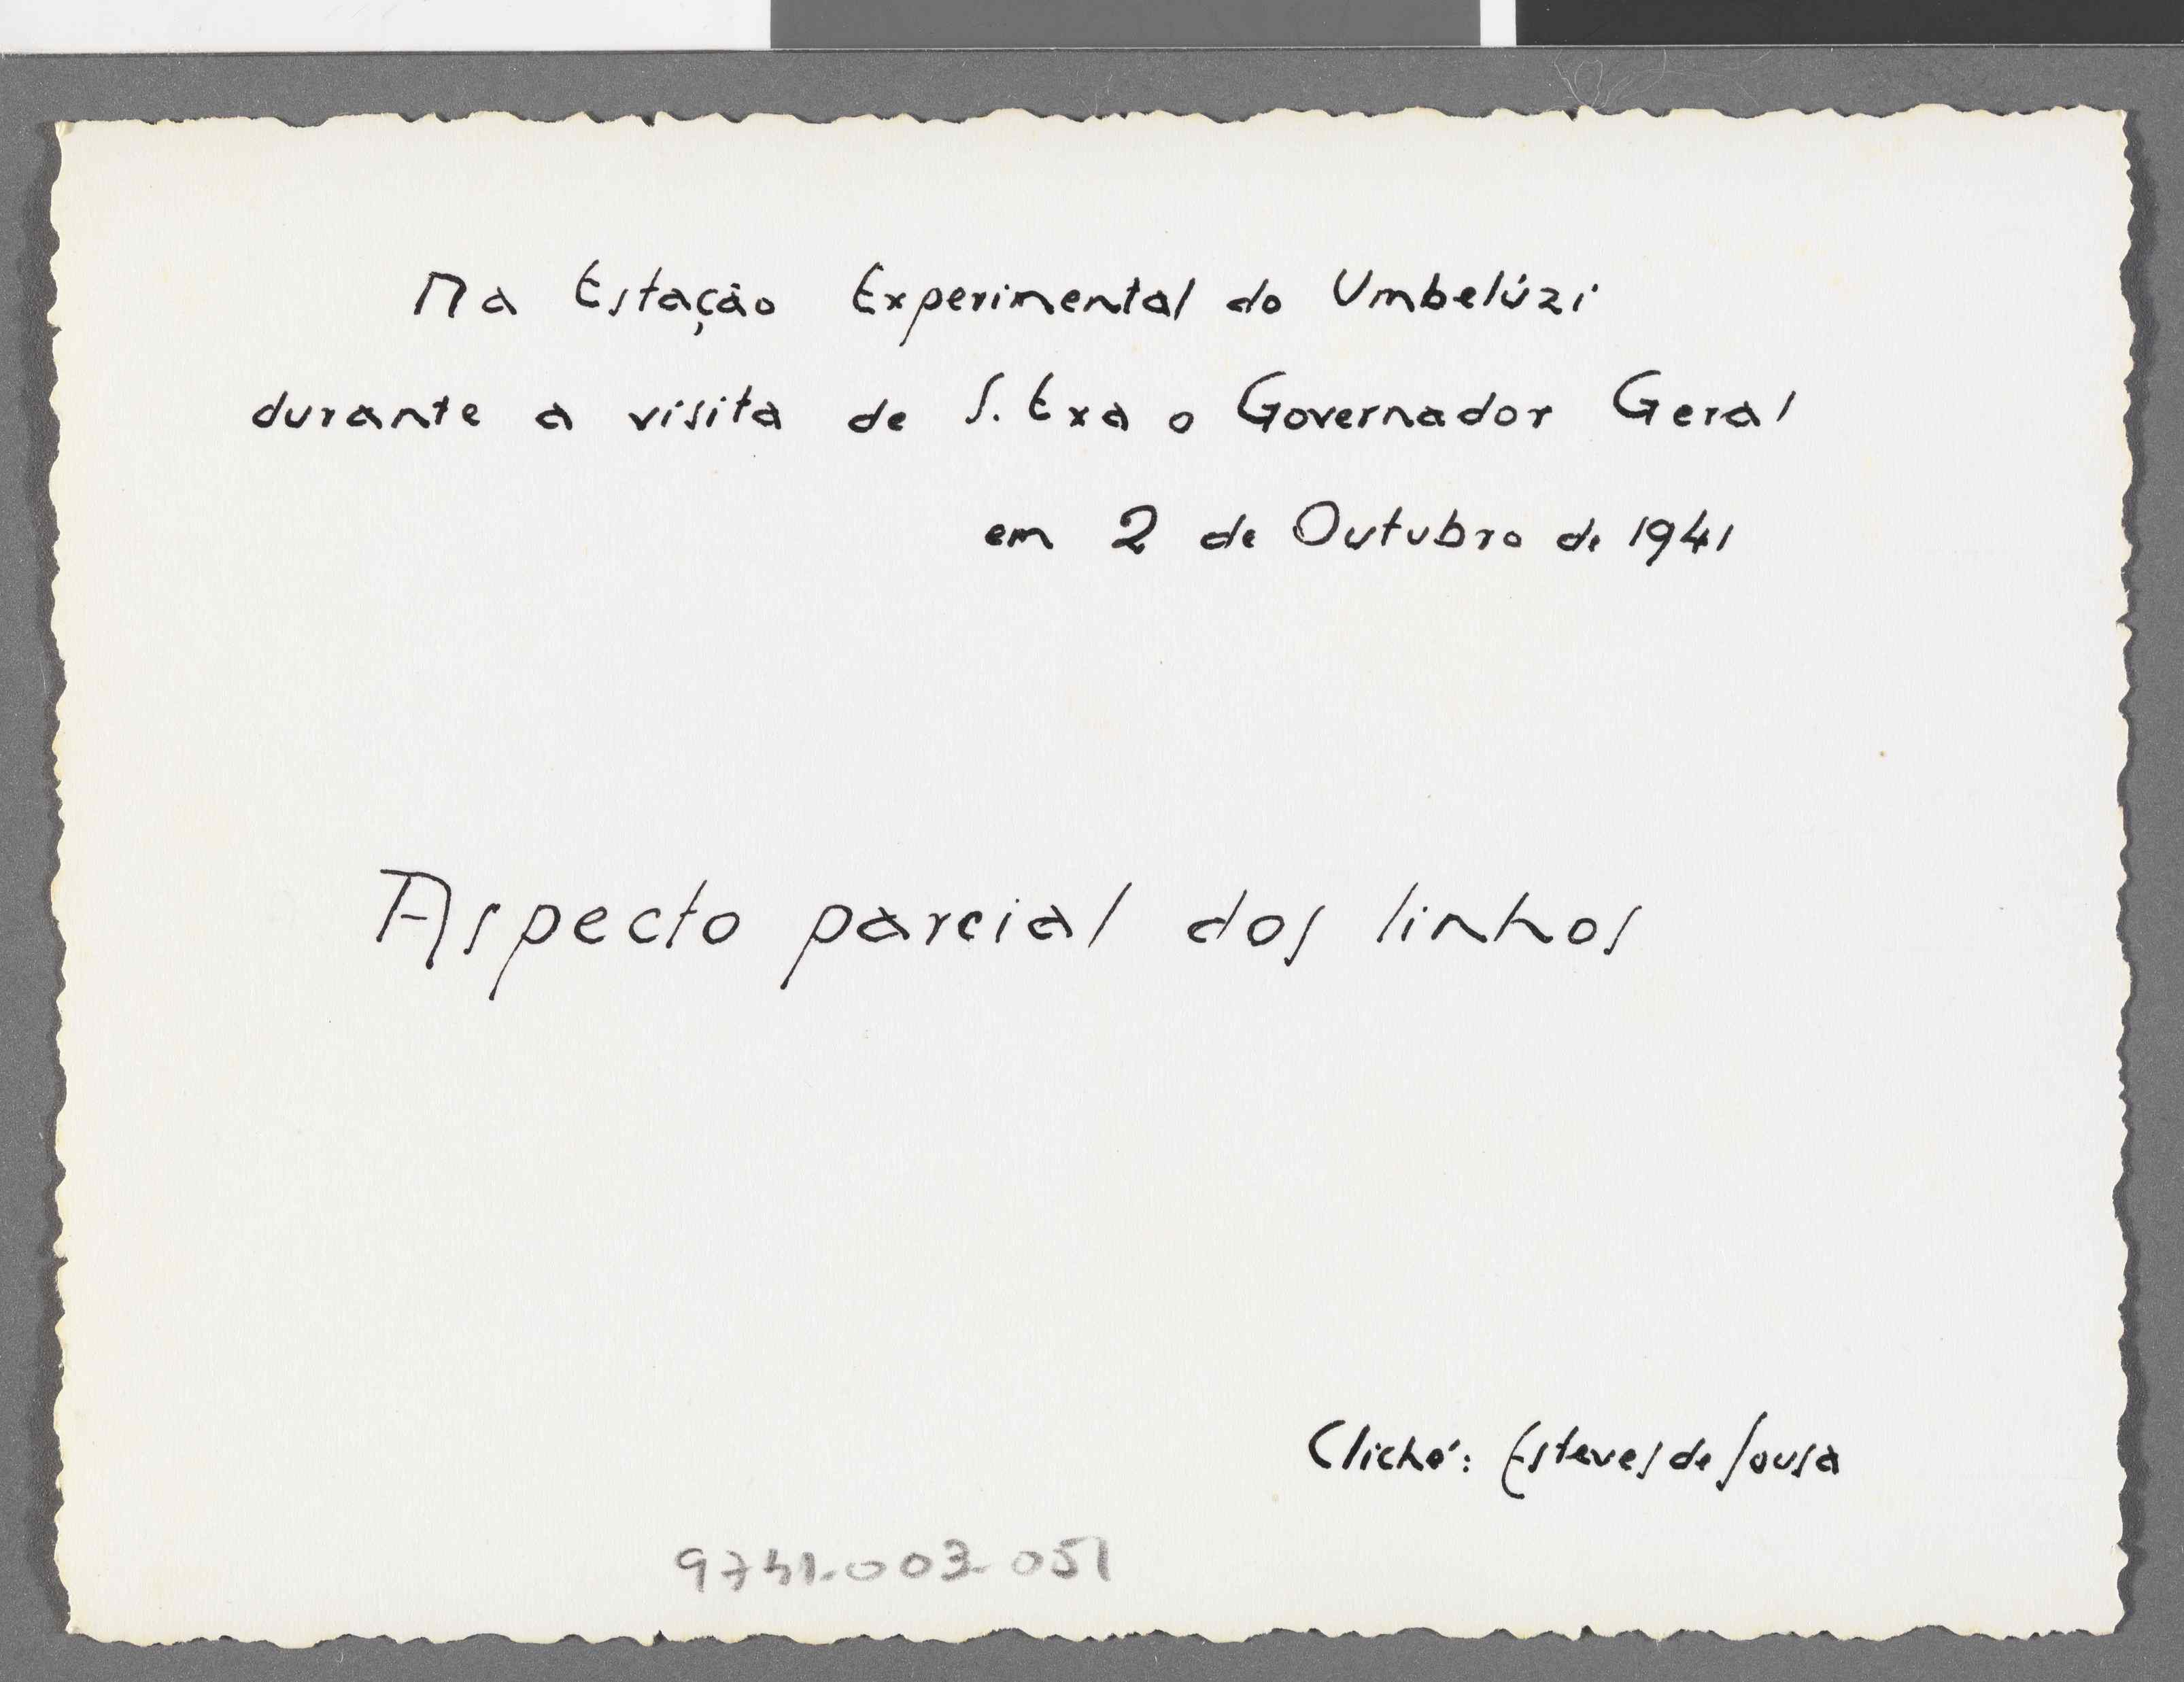 Na Estação Experimental do Umbelúzi
durante a visita de S. Exa o Governador Geral
em 2 de Outubro de 1941
Aspecto parcial dos linhos
Cliché: Esteves de Sousa
9741.003.051